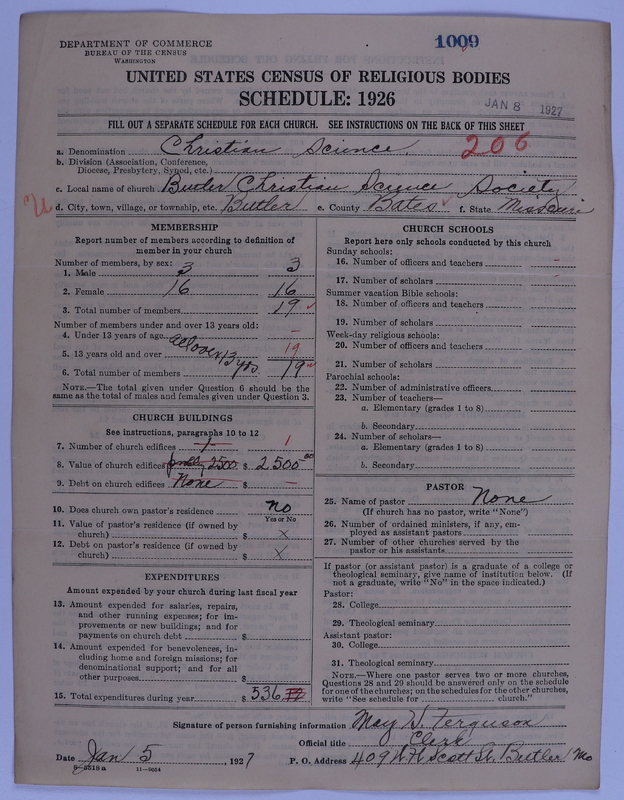 DEPARTMENT OF COMMERCE
BUREAU OF THE CENSUS
WASHINGTON
1009
UNITED STATES CENSUS OF RELIGIOUS BODIES
SCHEDULE: 1926
JAN 8 1927
FILL OUT A SEPARATE SCHEDULE FOR EACH CHURCH. SEE INSTRUCTIONS ON THE BACK OF THIS SHEET
a. Denomination Christian Science 206
b. Division (Association, Conference,
Diocese, Presbytery, Synod, etc.)
c. Local name of church Butler Christian Science Society
d. City, town, village, or township, etc. Butler e. County Bates f. State Missouri
MEMBERSHIP
Report number of members according to definition of
member in your church
Number of members, by sex:
1. Male 3 3
2. Female 16 16
3. Total number of members 19
Number of members under and over 13 years old:
4. Under 13 years of age –
5. 13 years old and over all over 13 yrs. 19
6. Total number of members 19
NOTE.—The total given under Question 6 should be the
same as the total of males and females given under Question 3.
CHURCH BUILDINGS
See instructions, paragraphs 10 to 12
7. Number of church edifices 1 1
8. Value of church edifices 2500 $ 2500 00
9. Debt on church edifices None $ –
10. Does church own pastor's residence no
Yes or No
11. Value of pastor's residence (if owned by
church) $ x
12. Debt on pastor's residence (if owned by
church) $ x
EXPENDITURES
Amount expended by your church during last fiscal year
13. Amount expended for salaries, repairs,
and other running expenses; for im-
provements or new buildings; and for
payments on church debt $
14. Amount expended for benevolences, in-
cluding home and foreign missions; for
denominational support; and for all
other purposes $
15. Total expenditures during year $ 536
CHURCH SCHOOLS
Report here only schools conducted by this church
Sunday schools:
16. Number of officers and teachers –
17. Number of scholars –
Summer vacation Bible schools:
18. Number of officers and teachers
19. Number of scholars
Week-day religious schools:
20. Number of officers and teachers
21. Number of scholars
Parochial schools:
22. Number of administrative officers
23. Number of teachers—
a. Elementary (grades 1 to 8)
b. Secondary
24. Number of scholars—
a. Elementary (grades 1 to 8)
b. Secondary
PASTOR
25. Name of pastor None
(If church has no pastor, write "None")
26. Number of ordained ministers, if any, em-
ployed as assistant pastors
27. Number of other churches served by the
pastor or his assistants
If pastor (or assistant pastor) is a graduate of a college or
theological seminary, give name of institution below. (If
not a graduate, write "No" in the space indicated.)
Pastor:
28. College
29. Theological seminary
Assistant pastor:
30. College
31. Theological seminary
NOTE.—Where one pastor serves two or more churches,
Questions 28 and 29 should be answered only on the schedule
for one of the churches; on the schedules for the other churches,
write "See schedule for church."
Signature of person furnishing information May W. Ferguson
Official title Clerk
Date Jan 5, 1927 P. O. Address 409 W. Ft Scott St. Butler Mo
8—5518a 11—9054